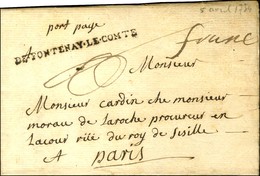 5 avril 1734
port paye
franc
DE FONTENAY-LE-COMTE
Monsieur
Monsieur cardin che monsieur
morau de laroche procureur en
lacour rüe du roy de sisille
A paris